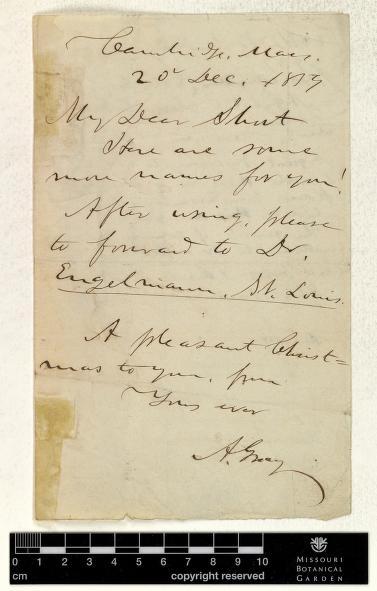 Cambridge, Mass.
20 Dec. 1859
My Dear Short
Here are some
more names for you!
After using, please
to forward to Dr.
Engelmann, St. Louis.
A pleasant Christ=
mas to you, from
Yours ever
A. Gray
0 1 2 3 4 5 6 7 8 9 10
cm
copyright reserved
MISSOURI
BOTANICAL
GARDEN